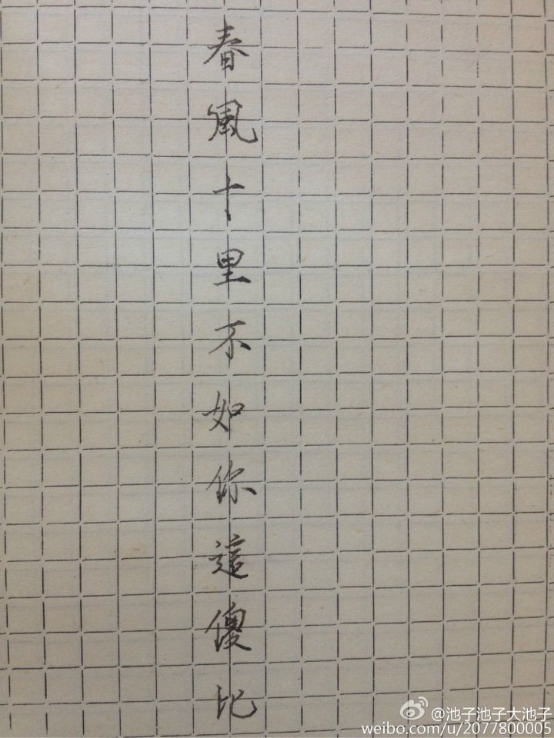 春風十里不如你這傻比
@池子池子大池子
weibo.com/u/2077800005